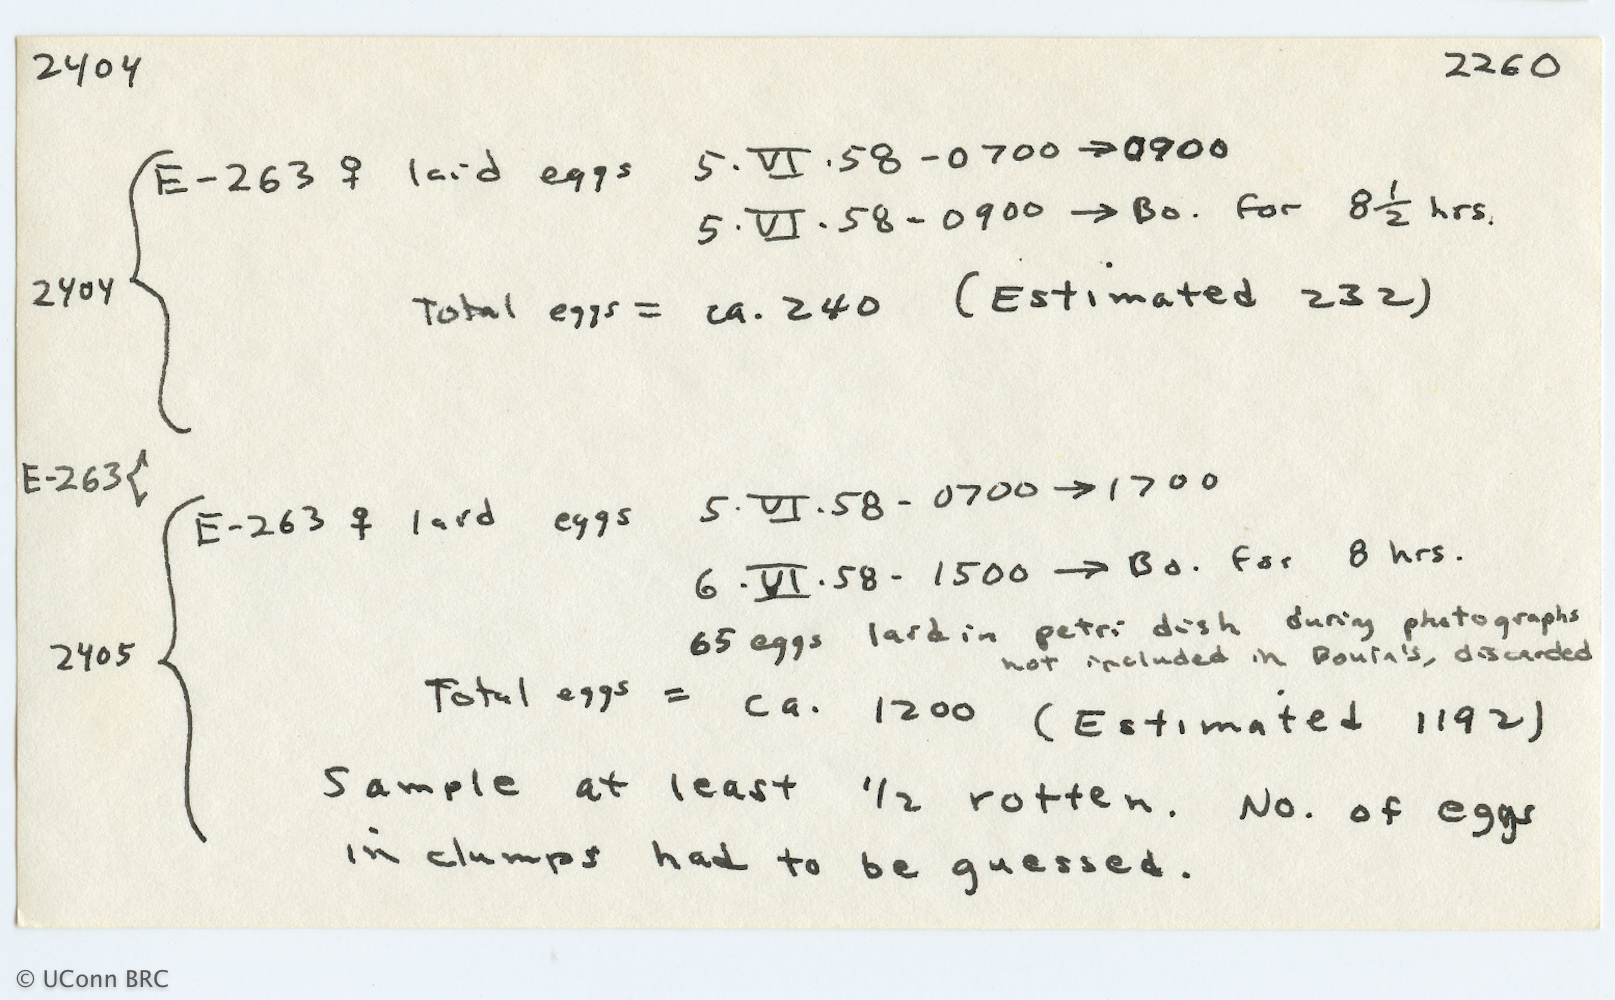 2404 2260
E-263 ♀ laid eggs 5.VI.58-0700→0900
5.VI.58-0900→Bo. for 8 1/2 hrs.
2404
Total eggs = ca. 240 (Estimated 232)
E-263
E-263 ♀ laid eggs 5.VI.58-0700→1700
6.VI.58-1500→Bo. for 8 hrs.
65 eggs laid in petri dish during photographs
not included in Bouin's, discarded
2405
Total eggs = ca. 1200 (Estimated 1192)
Sample at least 1/2 rotten. No. of eggs
in clumps had to be guessed.
© UConn BRC